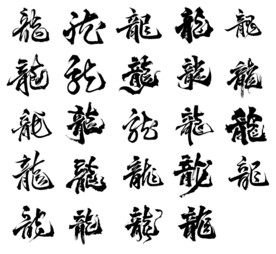 龍 龍 龍 龍 龍
龍 龍 龍 龍 龍
龍 龍 龍 龍 龍
龍 龍 龍 龍 龍
龍 龍 龍 龍